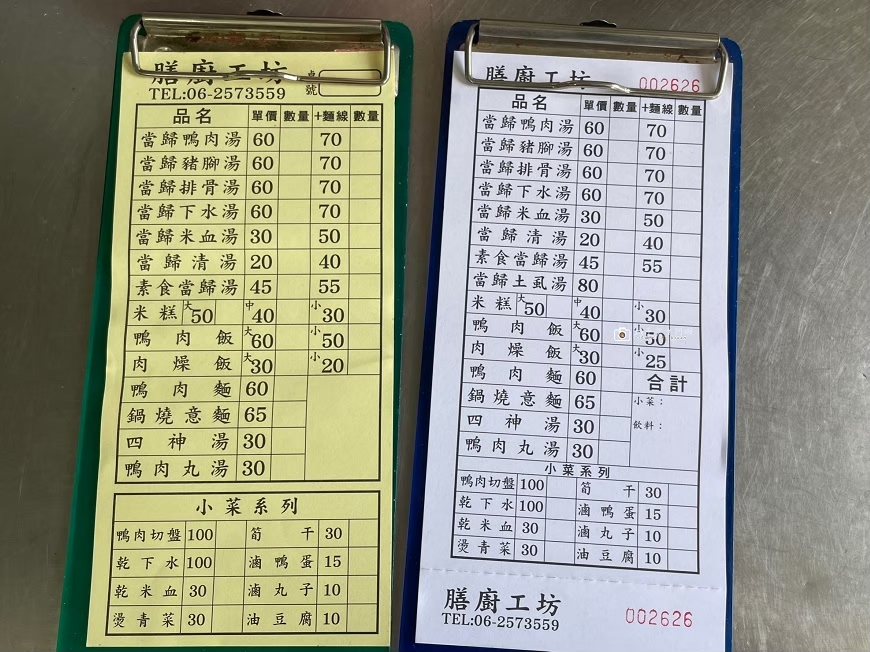 膳廚工坊
TEL:06-2573559
桌號
品名 單價 數量 +麵線 數量
當歸鴨肉湯 60 70
當歸豬腳湯 60 70
當歸排骨湯 60 70
當歸下水湯 60 70
當歸米血湯 30 50
當歸清湯 20 40
素食當歸湯 45 55
米糕 大50 中40 小30
鴨肉飯 大60 小50
肉燥飯 大30 小20
鴨肉麵 60
鍋燒意麵 65
四神湯 30
鴨肉丸湯 30
小菜系列
鴨肉切盤 100 筍干 30
乾下水 100 滷鴨蛋 15
乾米血 30 滷丸子 10
燙青菜 30 油豆腐 10
膳廚工坊 002626
品名 單價 數量 +麵線 數量
當歸鴨肉湯 60 70
當歸豬腳湯 60 70
當歸排骨湯 60 70
當歸下水湯 60 70
當歸米血湯 30 50
當歸清湯 20 40
素食當歸湯 45 55
當歸土虱湯 80
米糕 大50 中40 小30
鴨肉飯 大60 小50
肉燥飯 大30 小25
鴨肉麵 60 合計
鍋燒意麵 65 小菜：
四神湯 30 飲料：
鴨肉丸湯 30
小菜系列
鴨肉切盤 100 筍干 30
乾下水 100 滷鴨蛋 15
乾米血 30 滷丸子 10
燙青菜 30 油豆腐 10
膳廚工坊
TEL:06-2573559 002626